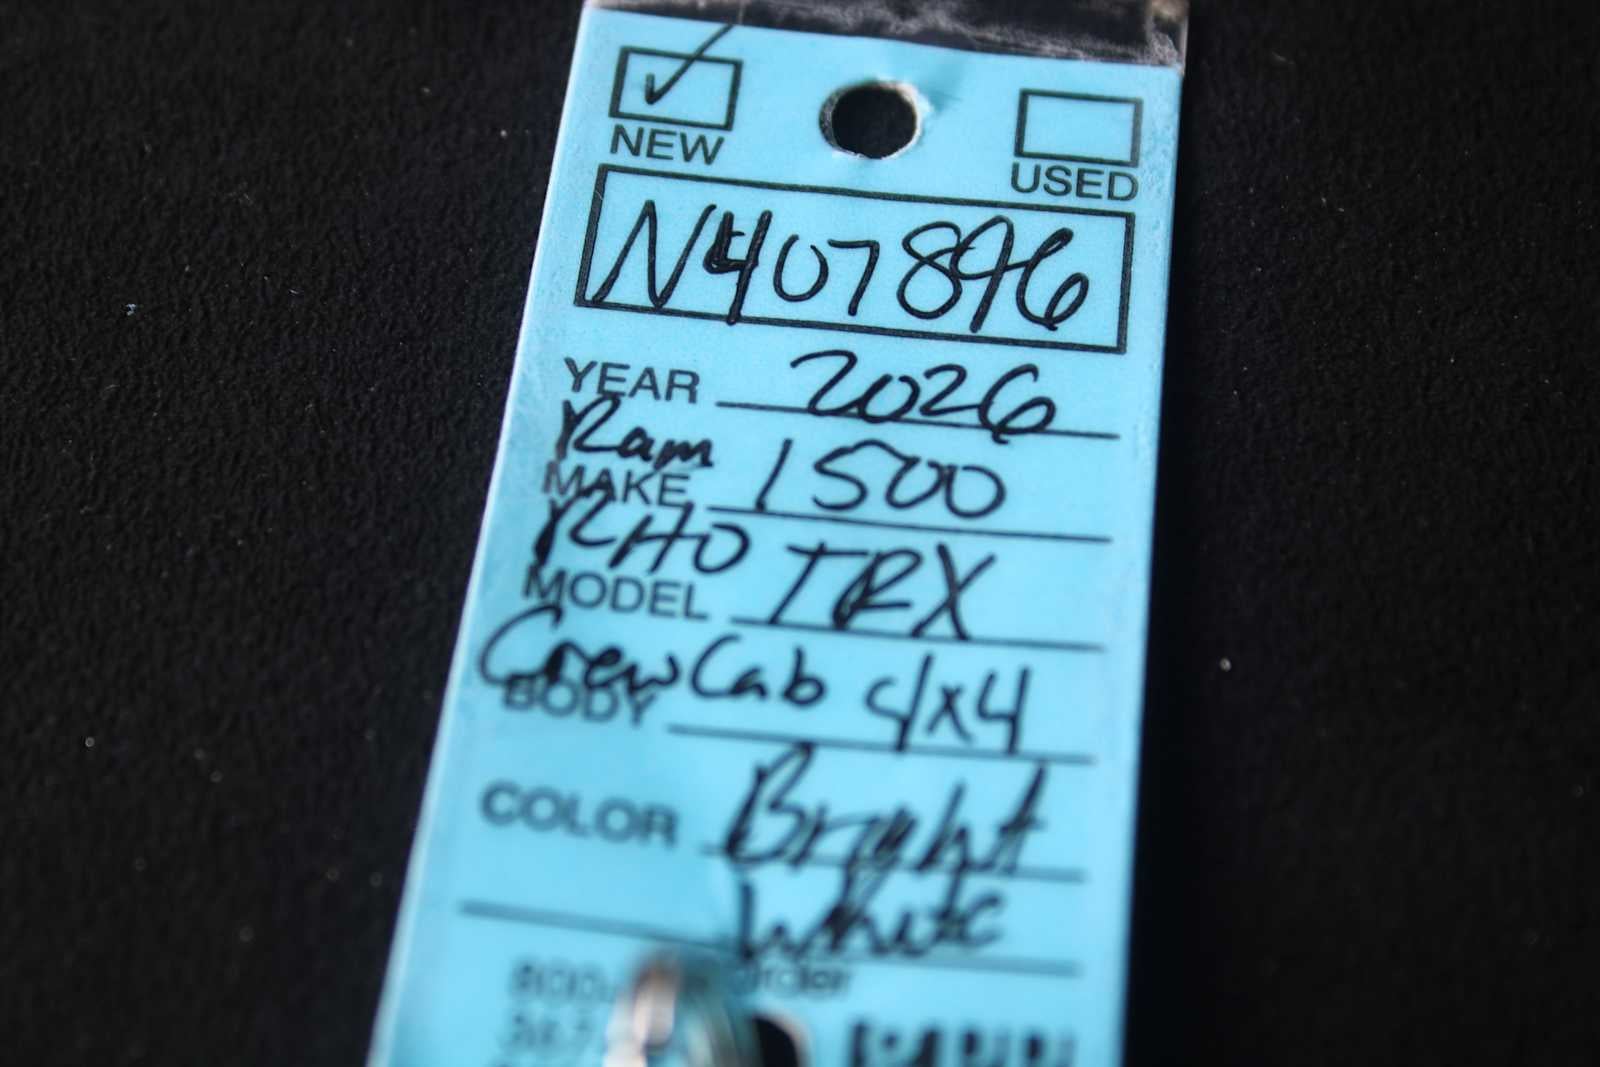 NEW USED
N407896
YEAR 2026
Ram 1500
MAKE
RHO TRX
MODEL
Crew Cab 4x4
BODY
COLOR Bright
White